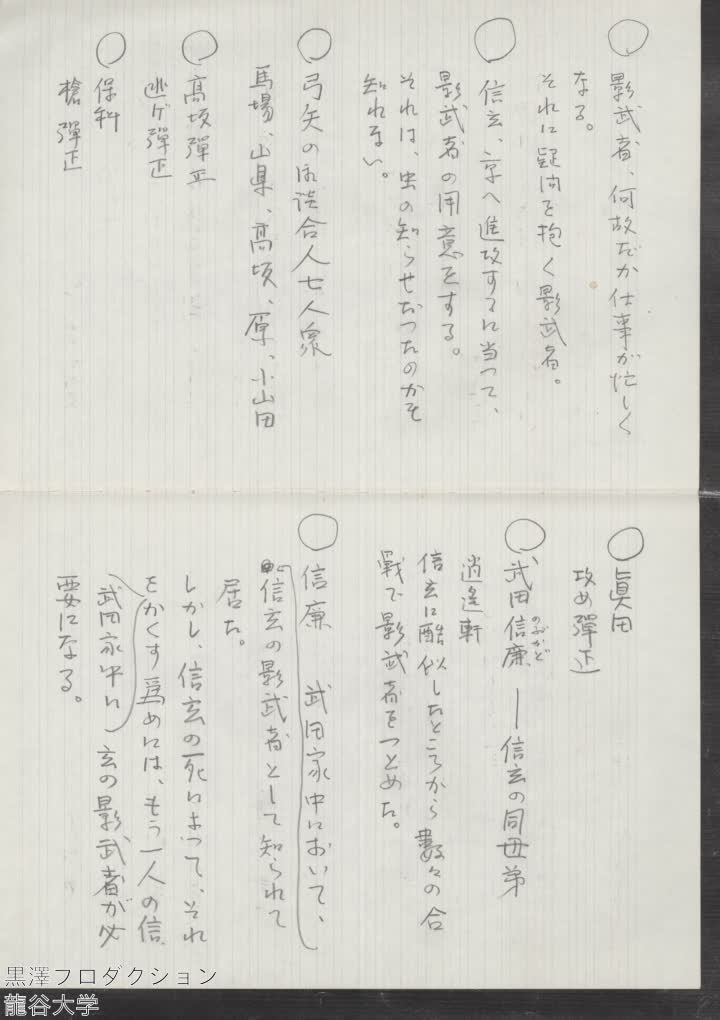 ○ 影武者、何故だか仕事が忙しく
なる。
それに疑問を抱く影武者。
○ 信玄、京へ進攻するに当って、
影武者の用意をする。
それは、虫の知らせだったのかも
知れない。
○ 弓矢の御談合人七人衆
馬場、山県、高坂、原、小山田
○ 高坂彈正
逃ゲ彈正
○ 保科
槍彈正
○ 眞田
攻め彈正
○ 武田信廉 ー 信玄の同母弟
のぶかど
逍遥軒
信玄に酷似したところから数々の合
戦で影武者をつとめた。
○ 信廉 武田家中において、
信玄の影武者として知られて
居た。
しかし、信玄の死によって、それ
をかくす為めには、もう一人の信
武田家中に 玄の影武者が必
要になる。
黒澤プロダクション
龍谷大学